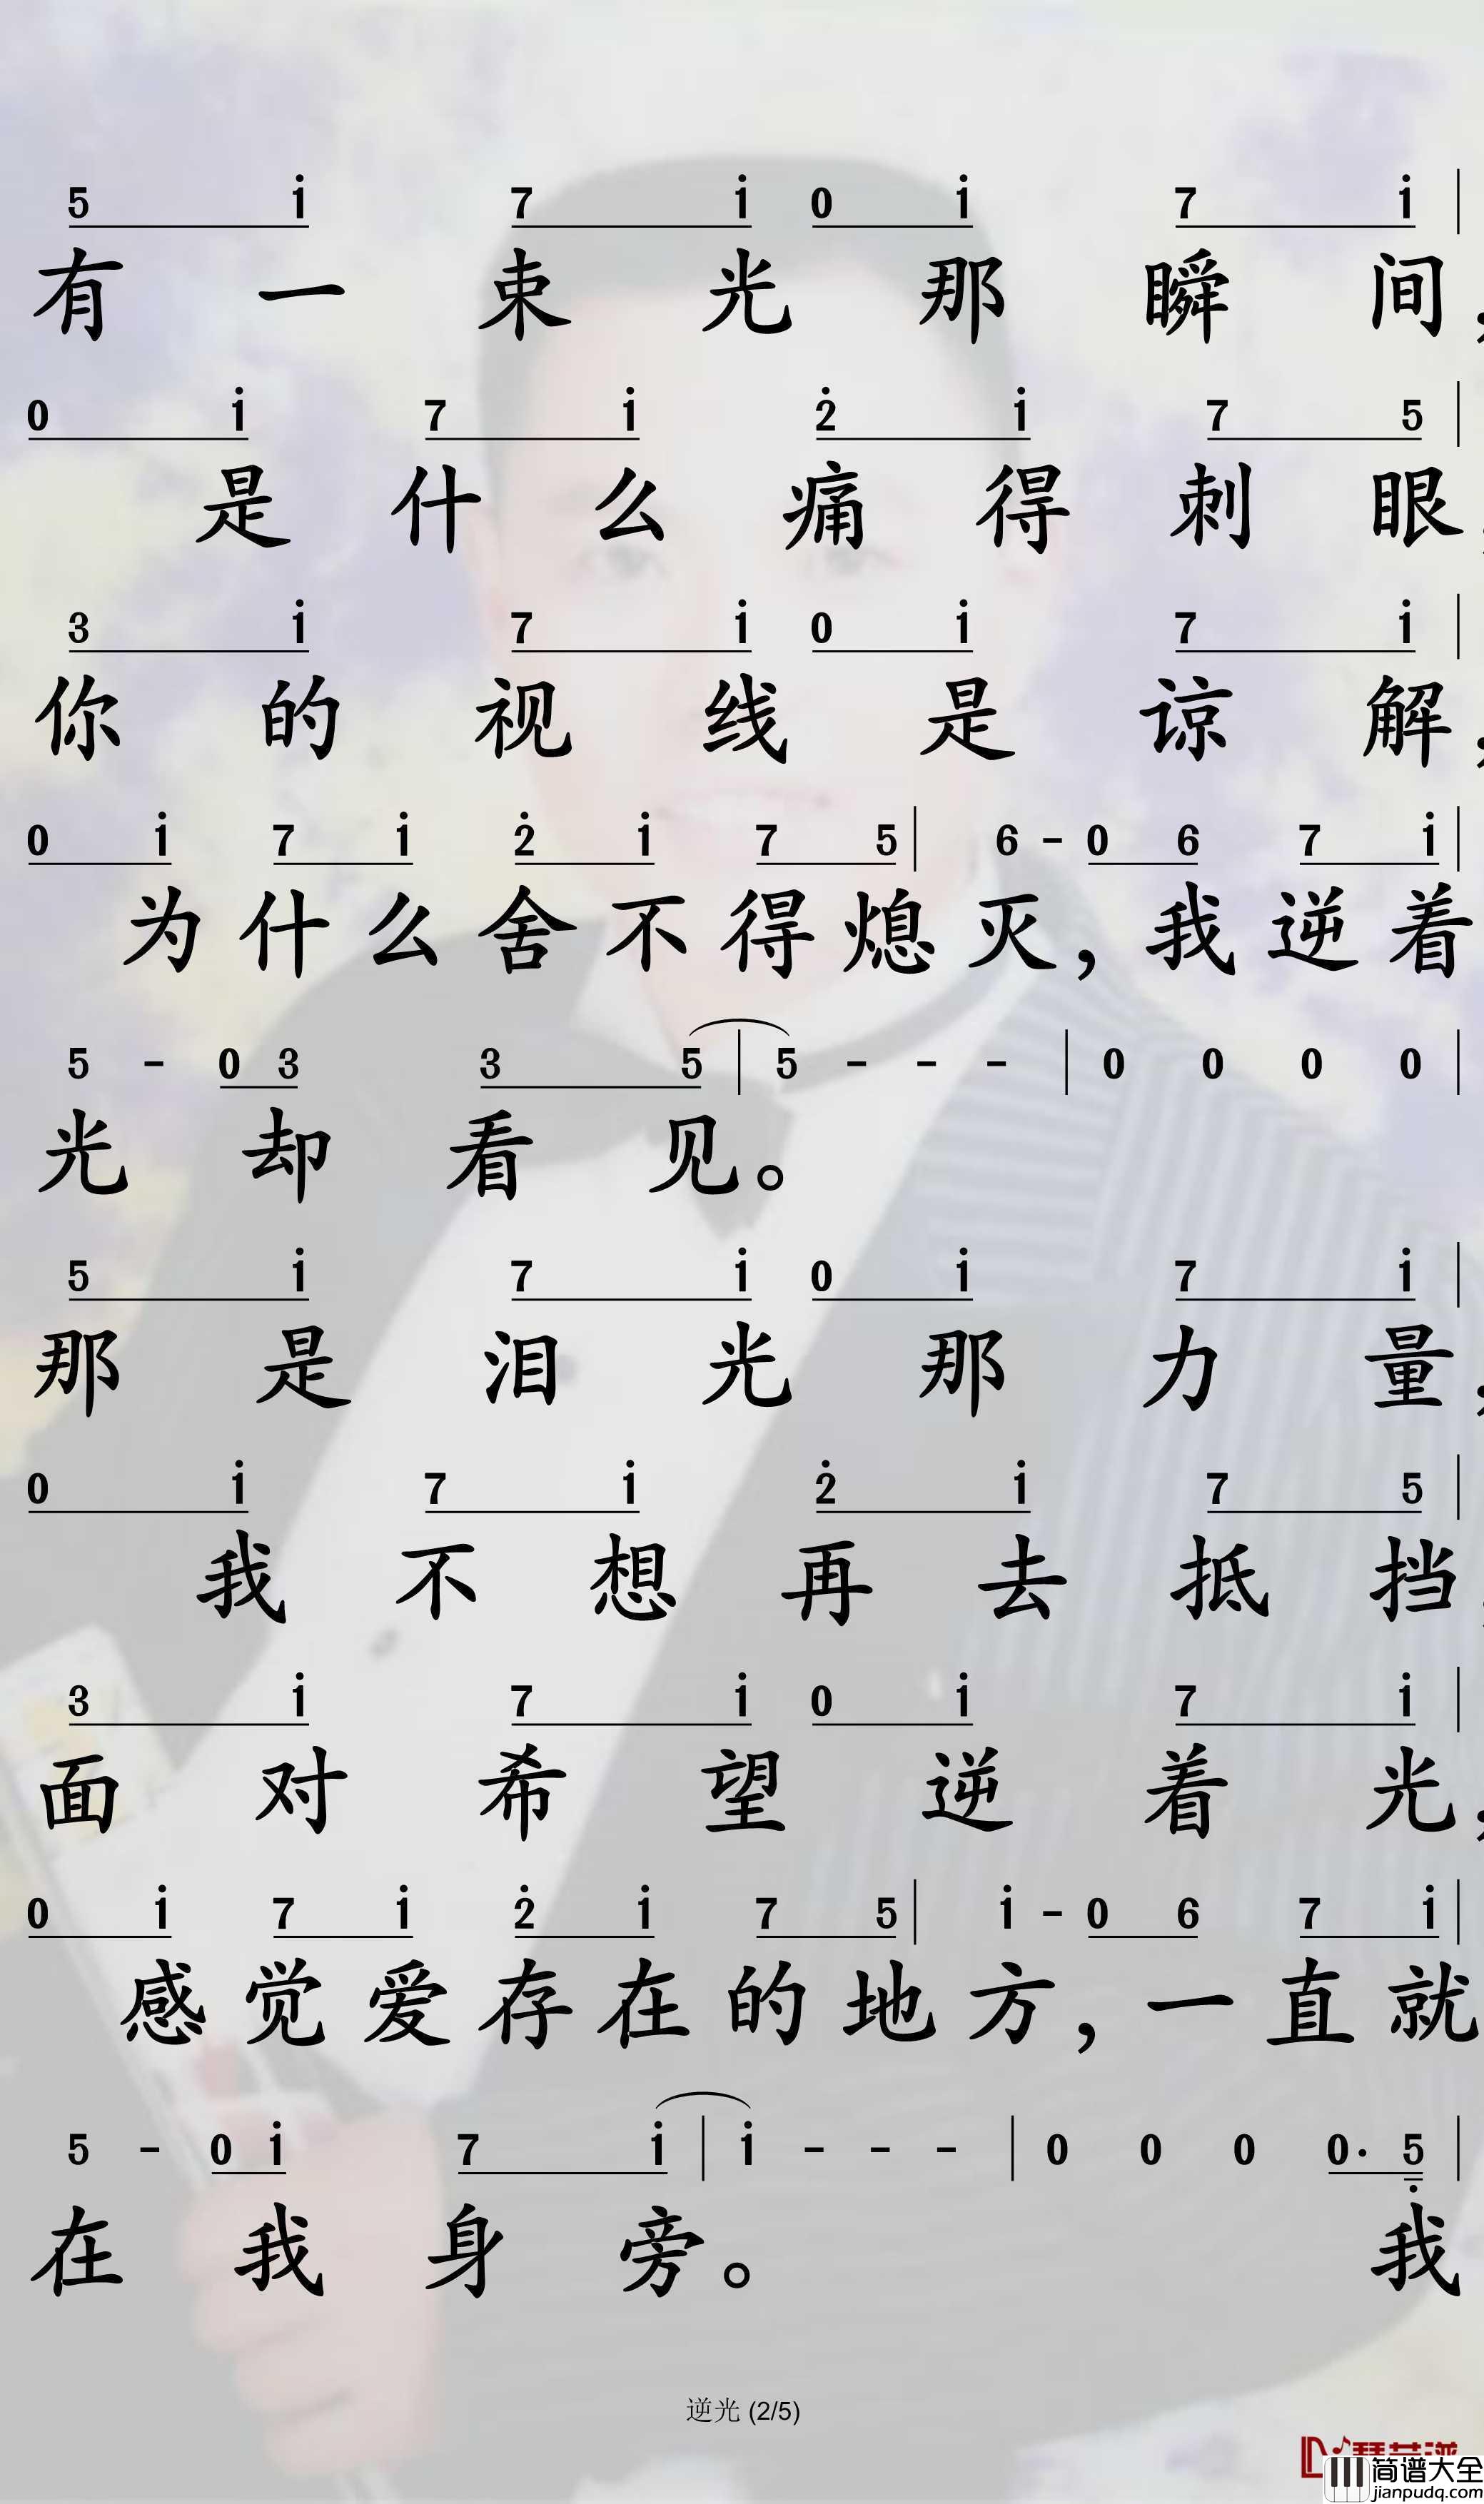 5 i 7 i 0 i 7 i |
有一束光那瞬间，
0 i 7 i 2 i 7 5 |
是什么痛得刺眼，
3 i 7 i 0 i 7 i |
你的视线是谅解，
0 i 7 i 2 i 7 5 | 6 - 0 6 7 i |
为什么舍不得熄灭，我逆着
5 - 0 3 3 5 | 5 - - - | 0 0 0 0 |
光却看见。
5 i 7 i 0 i 7 i |
那是泪光那力量，
0 i 7 i 2 i 7 5 |
我不想再去抵挡，
3 i 7 i 0 i 7 i |
面对希望逆着光，
0 i 7 i 2 i 7 5 | i - 0 6 7 i |
感觉爱存在的地方，一直就
5 - 0 i 7 i | i - - - | 0 0 0 0· 5 |
在我身旁。 我
逆光 (2/5)
简谱大全
jianpudq.com